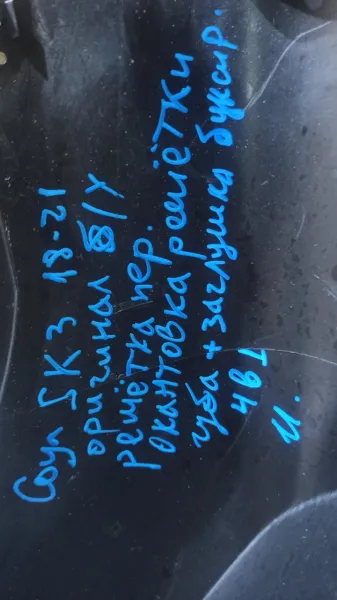 Соул SK3 18-21
оригинал Б/У
решётка пер.
окантовка решётки
губа + заглушка буксир.
4в1
И.